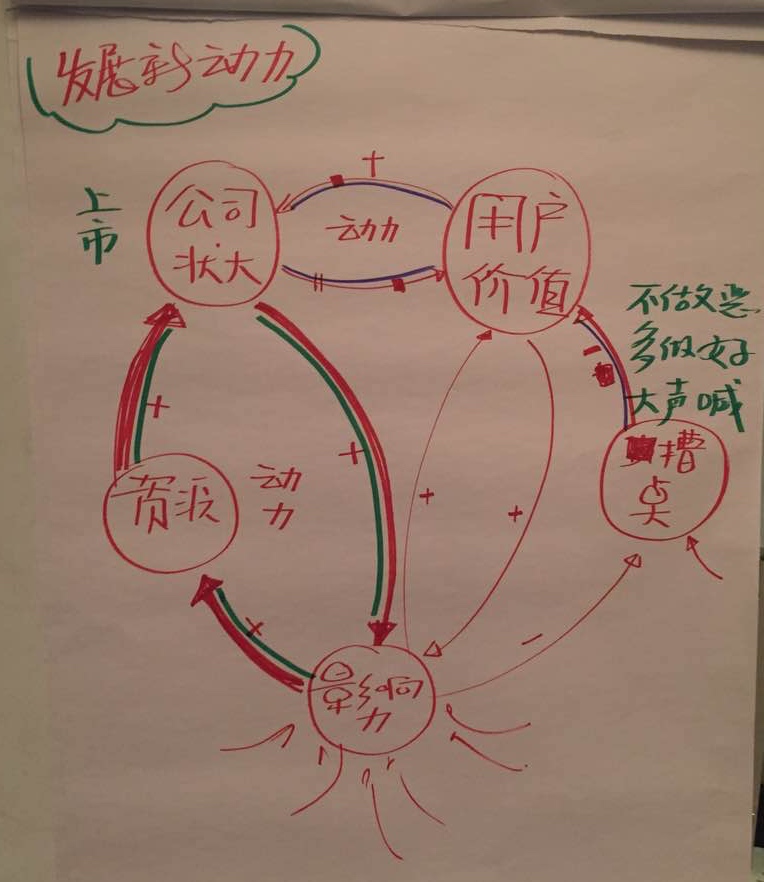 发展新动力
上
市
公司
状大
+
动力
用户
价值
不做恶
多做好
大声喊
槽
点
资派
动
力
+
+
+
+
影响
力